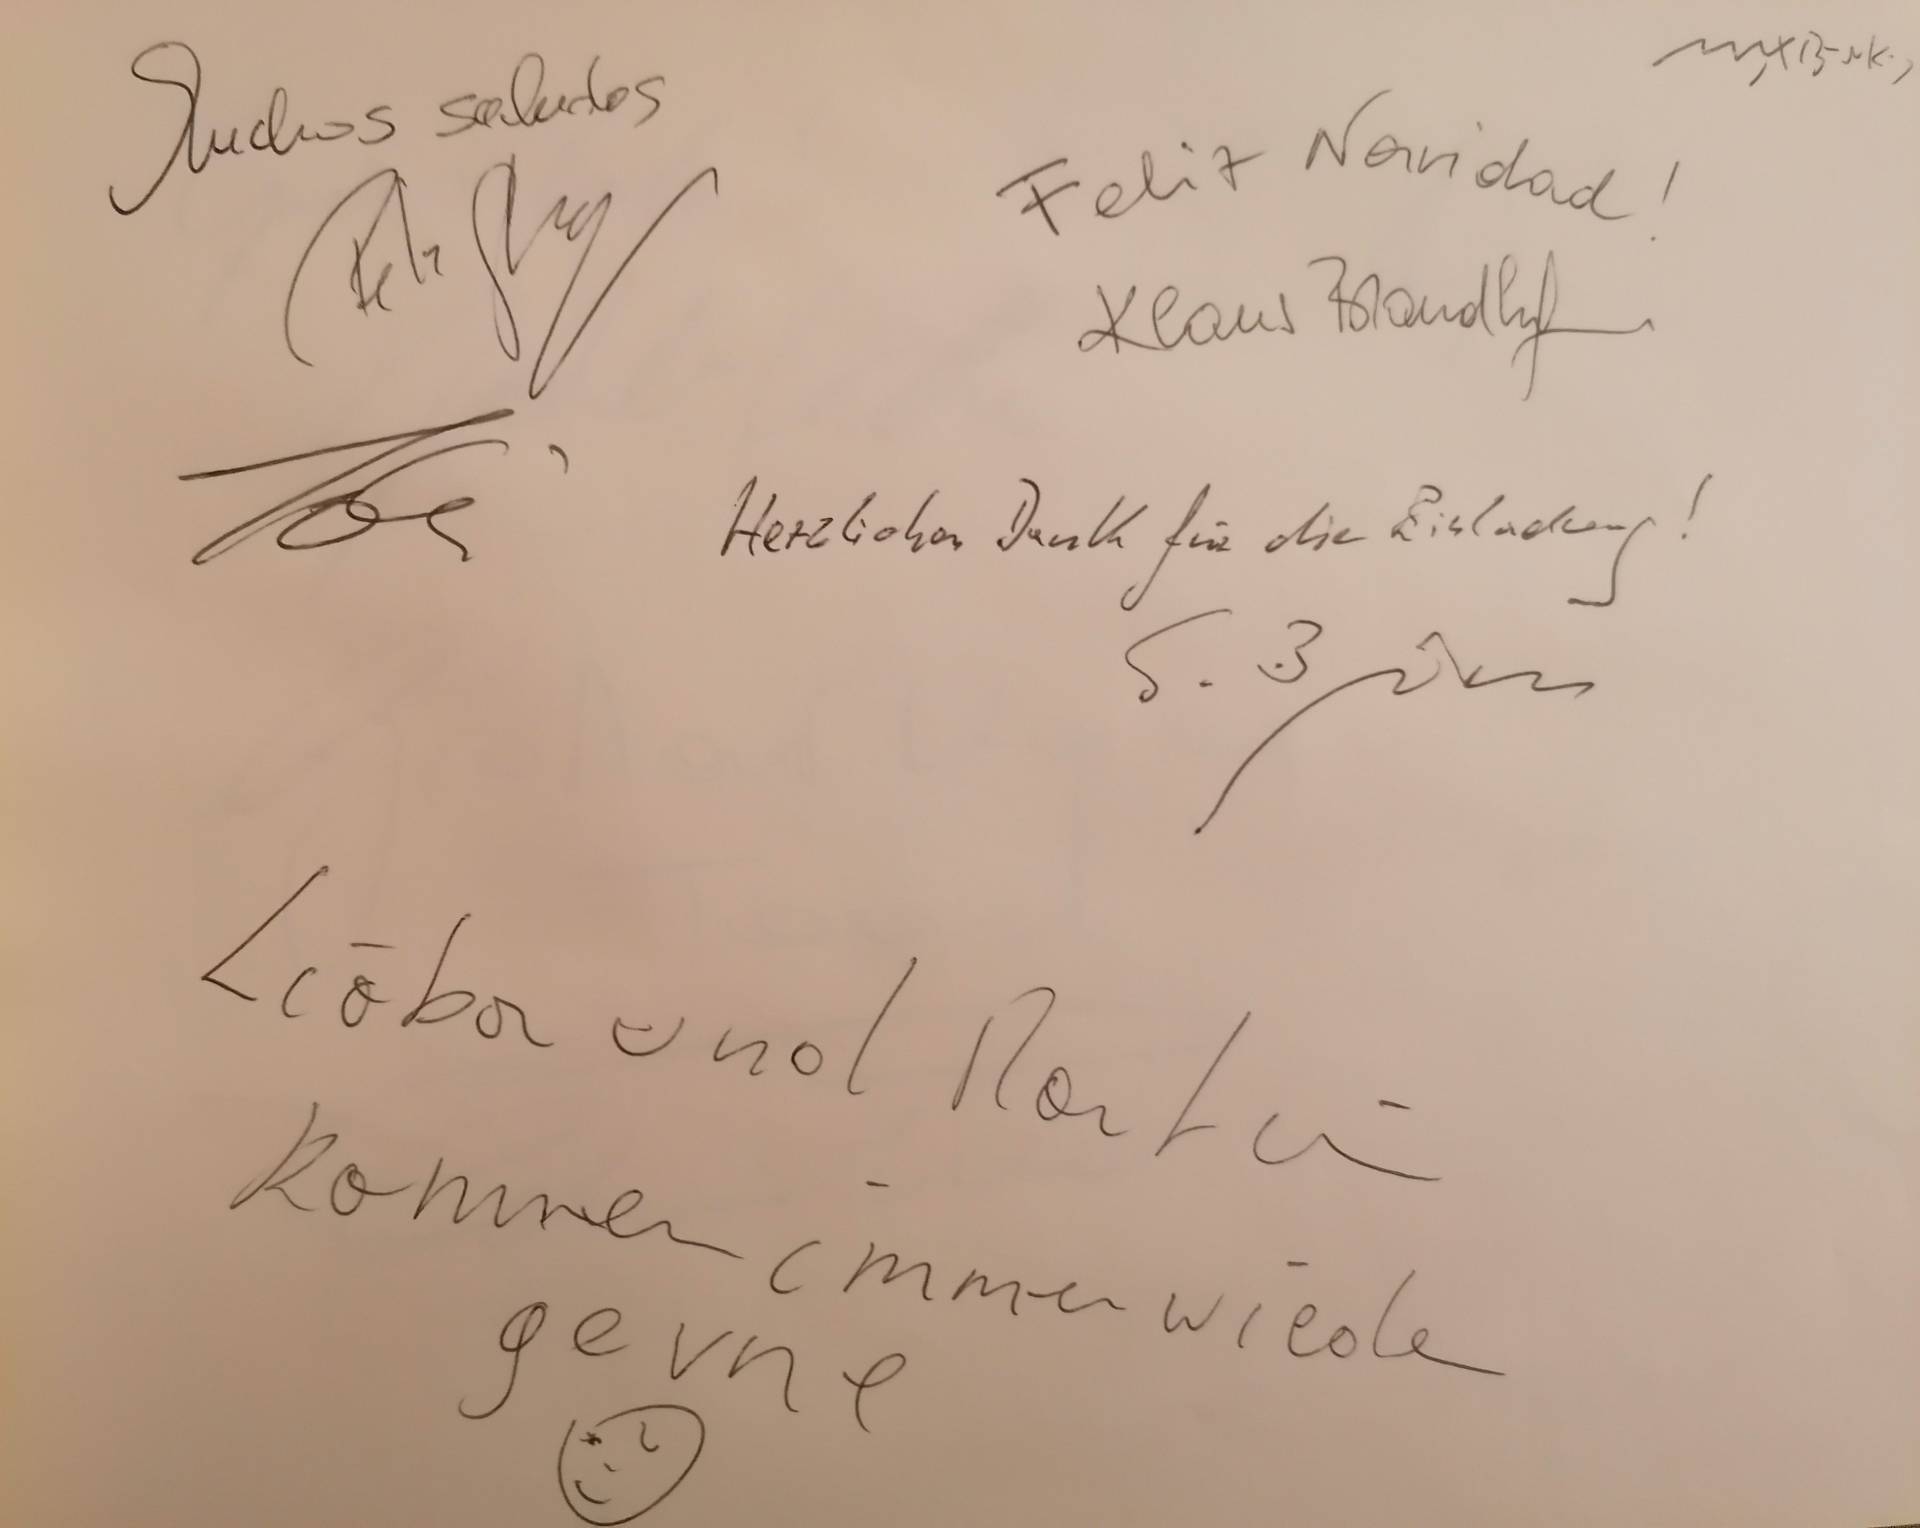 Muchos saludos
Feliz Navidad!
Klaus Brandhof
Herzlichen Dank für die Einladung!
S. B
und Martin
kommen immer wieder
gerne